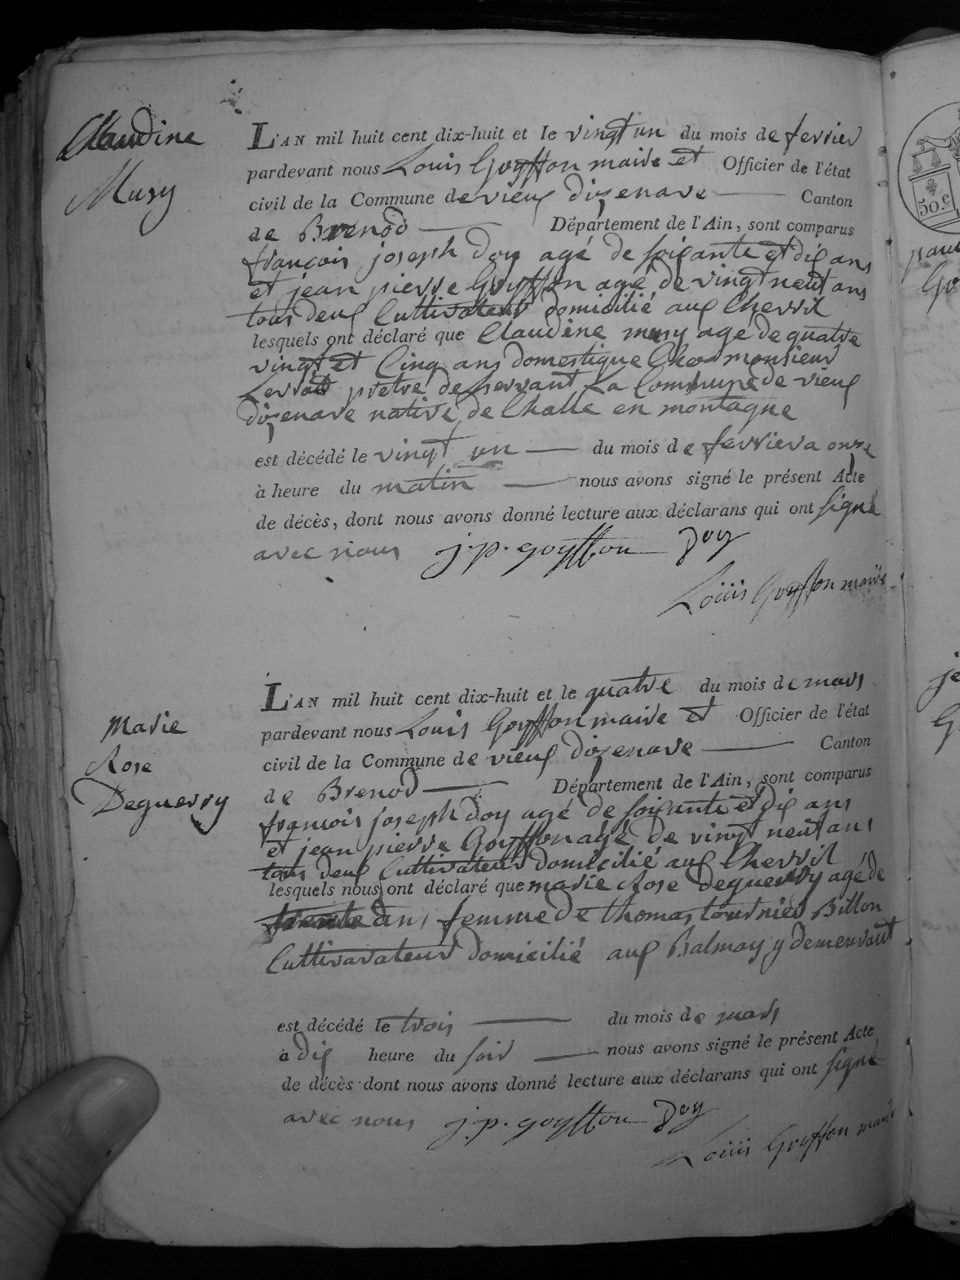 Claudine
Musy
L'AN mil huit cent dix-huit et le vingt un du mois de fevrier
pardevant nous Louis Goyffon maire et Officier de l'état
civil de la Commune de vieux dizenave Canton
de Brenod Département de l'Ain, sont comparus
françois joseph Doy agé de soixante et dix ans
et jean pierre Goyffon agé de vingt neuf ans
tous deux Cultivateur domicilié aux Chevril
lesquels ont déclaré que Claudine musy age de quatre
vingt et Cinq ans domestique Ches monsieur
pretre desservant La Commune de vieux
dizenave native de Challe en montagne
est décédé le vingt un du mois de fevrier a onze
à heure du matin nous avons signé le présent Acte
de décès, dont nous avons donné lecture aux déclarans qui ont signé
avec nous j.p. goyffon Doy
Louis Goyffon maire
Marie
Rose
Deguerry
L'AN mil huit cent dix-huit et le quatre du mois de mars
pardevant nous Louis Goyffon maire et Officier de l'état
civil de la Commune de vieux dizenave Canton
de Brenod Département de l'Ain, sont comparus
françois joseph Doy agé de soixante et dix ans
et jean pierre Goyffon agé de vingt neuf ans
tous deux Cultivateur domicilié aux Chevril
lesquels nous ont déclaré que marie Rose Deguerry agé de
trente ans femme de thomas tournier Billon
Cultivavateur domicilié aux Balmay y demeurant
est décédé le trois du mois de mars
à dix heure du soir nous avons signé le présent Acte
de décès dont nous avons donné lecture aux déclarans qui ont signé
avec nous j.p. goyffon Doy
Louis Goyffon maire
50.c